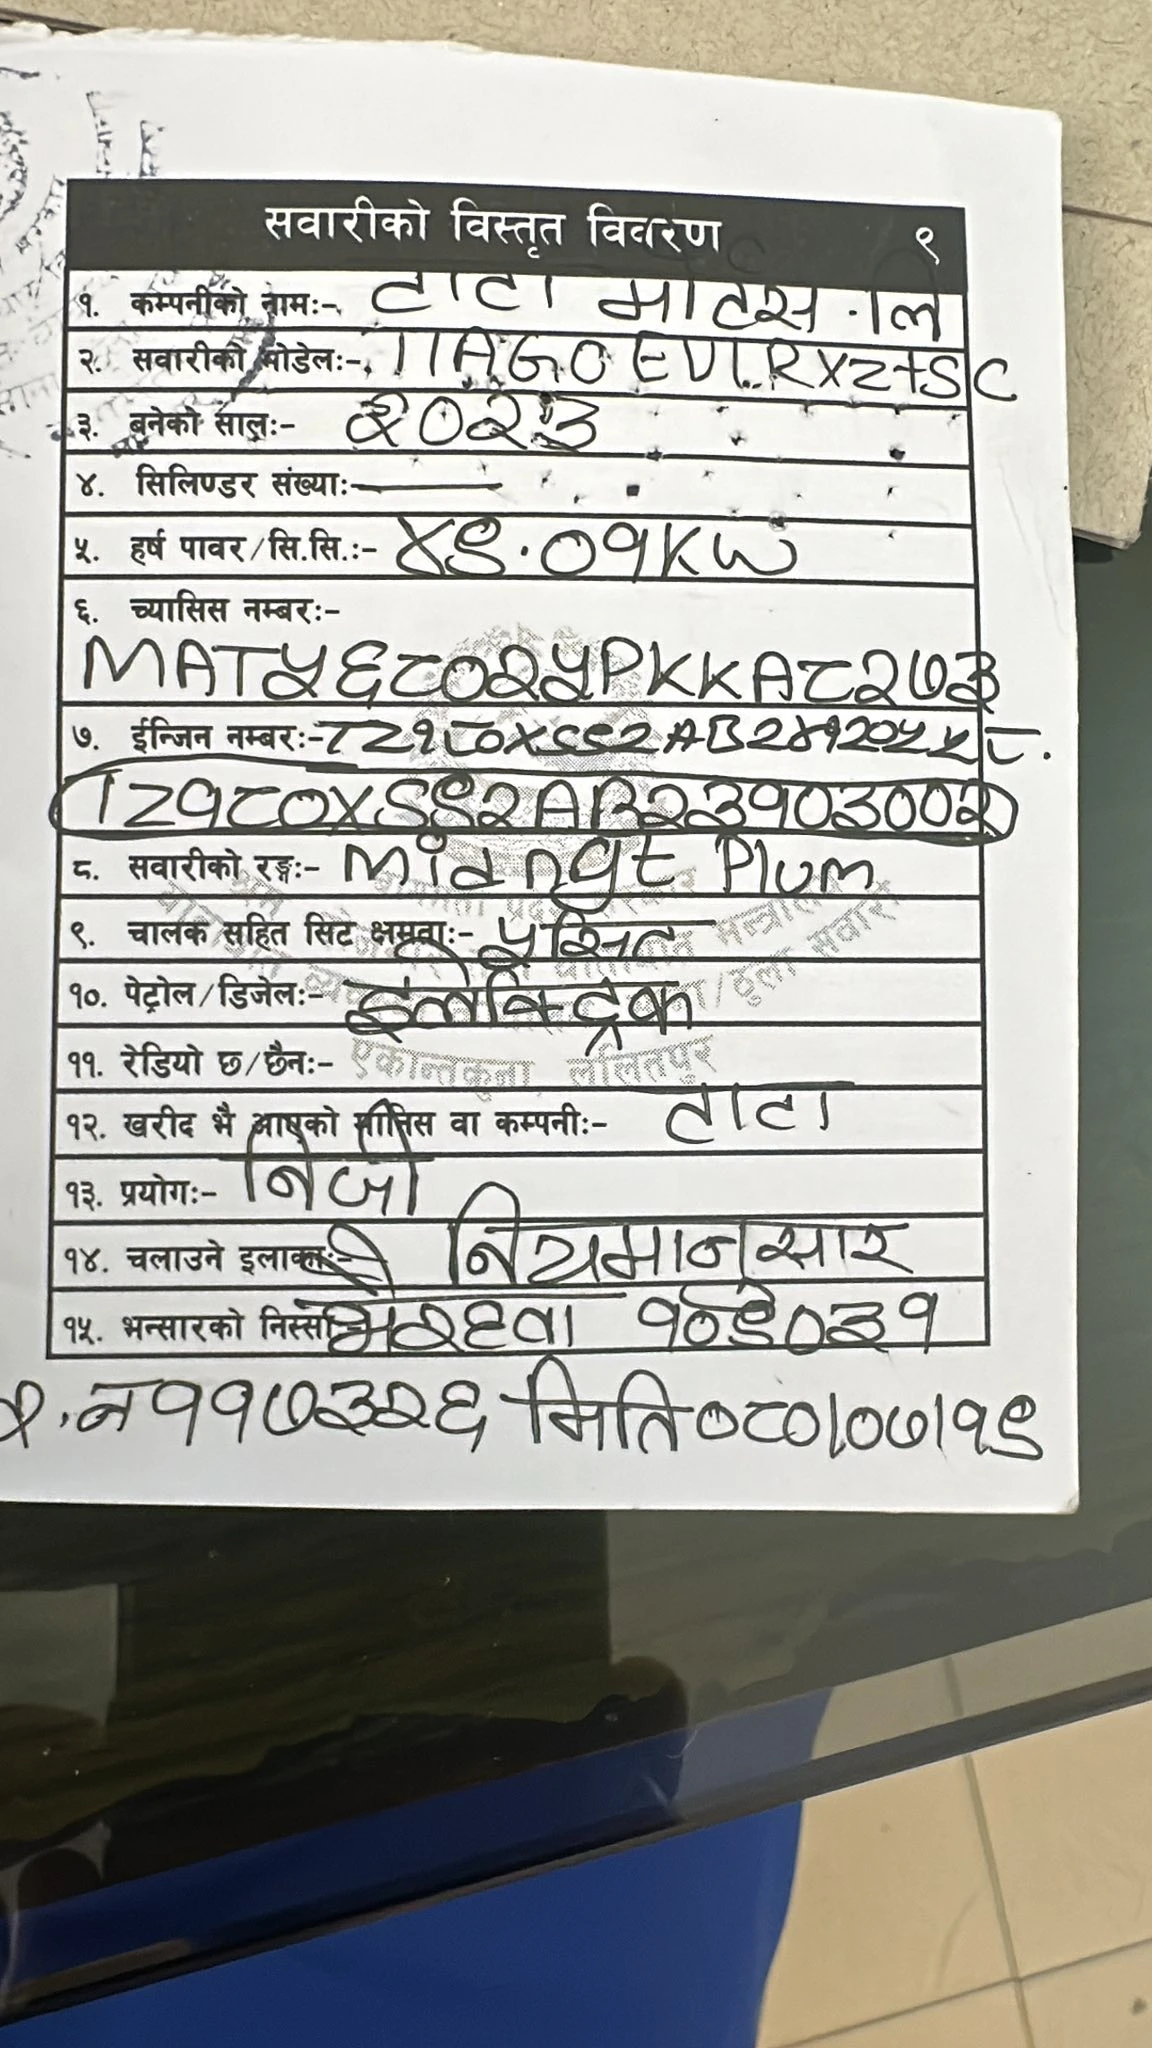 सवारीको विस्तृत विवरण ९
१. कम्पनीको नामः- टाटा मोटर्स लि
२. सवारीको मोडेलः- TIAGO EV LR XZ+SC
३. बनेको सालः- २०२३
४. सिलिण्डर संख्याः-
५. हर्ष पावर/सि.सि.ः- ४९.०१KW
६. च्यासिस नम्बरः-
MAT५६८०२५PKKA८२७३
७. ईन्जिन नम्बरः-
TZ१८०XSS२AB२३१०३००२
८. सवारीको रङ्गः- Midngt Plum
९. चालक सहित सिट क्षमताः- ५ सिट
१०. पेट्रोल/डिजेलः- इलेक्ट्रिक
११. रेडियो छ/छैनः-
एकान्तकुना, ललितपुर
१२. खरीद भै आएको मानिस वा कम्पनीः- टाटा
१३. प्रयोगः- निजी
१४. चलाउने इलाकाः- नियमानुसार
१५. भन्सारको निस्सा भैरहवा १०९०३१
प्र.न ११७३२६ मिति ०८०|०७|१९